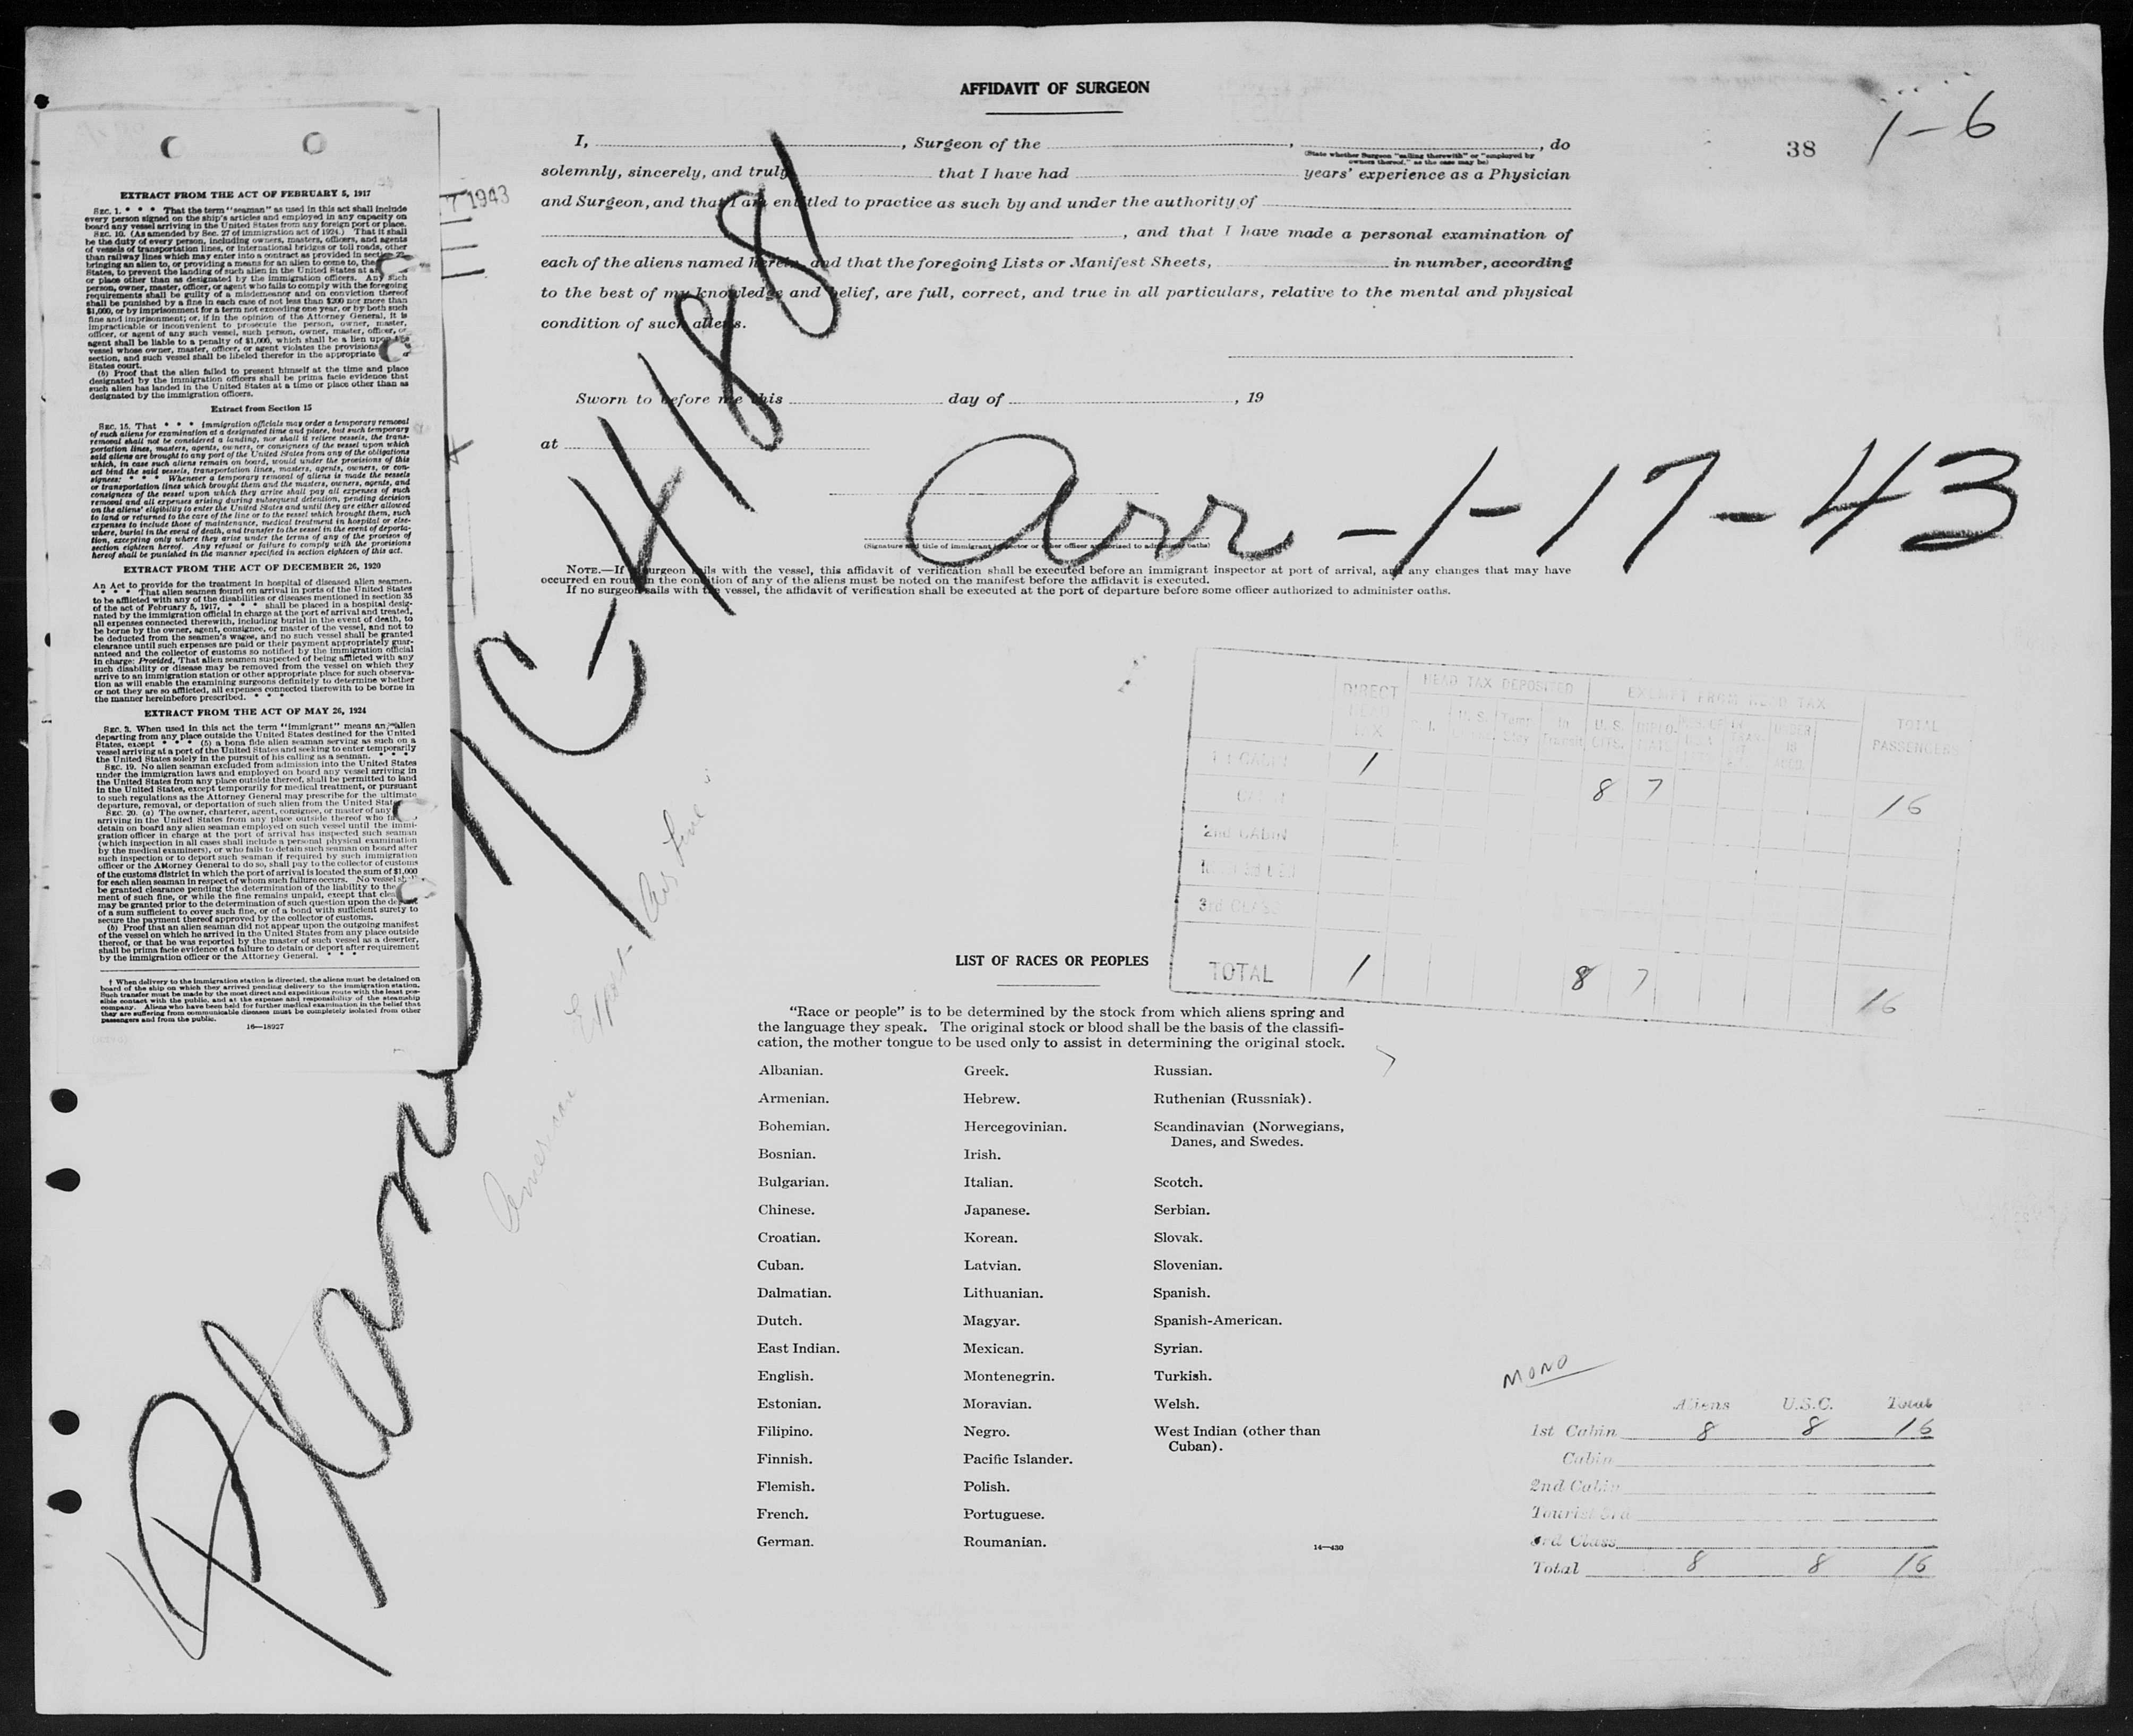 AFFIDAVIT OF SURGEON
38
1-6
I, , Surgeon of the , , do
(State whether Surgeon "sailing therewith" or "employed by
owners thereof," as the case may be)
solemnly, sincerely, and truly that I have had years' experience as a Physician
and Surgeon, and that I am entitled to practice as such by and under the authority of
, and that I have made a personal examination of
each of the aliens named herein, and that the foregoing Lists or Manifest Sheets, in number, according
to the best of my knowledge and belief, are full, correct, and true in all particulars, relative to the mental and physical
condition of such aliens.
Sworn to before me this day of , 19
at
Arr - 1-17-43
(Signature and title of immigrant inspector or other officer authorised to administer oaths)
NOTE.—If surgeon sails with the vessel, this affidavit of verification shall be executed before an immigrant inspector at port of arrival, and any changes that may have
occurred en route in the condition of any of the aliens must be noted on the manifest before the affidavit is executed.
If no surgeon sails with the vessel, the affidavit of verification shall be executed at the port of departure before some officer authorized to administer oaths.
7 1943
Plane NC-41881
American Export Air Lines
EXTRACT FROM THE ACT OF FEBRUARY 5, 1917
SEC. 1. * * * That the term "seaman" as used in this act shall include
every person signed on the ship's articles and employed in any capacity on
board any vessel arriving in the United States from any foreign port or place.
SEC. 10. (As amended by Sec. 27 of immigration act of 1924.) That it shall
be the duty of every person, including owners, masters, officers, and agents
of vessels of transportation lines, or international bridges or toll roads, other
than railway lines which may enter into a contract as provided in section
bringing an alien to, or providing a means for an alien to come to, the
States, to prevent the landing of such alien in the United States at any
or place other than as designated by the immigration officers. Any such
person, owner, master, officer, or agent who fails to comply with the foregoing
requirements shall be guilty of a misdemeanor and on conviction thereof
shall be punished by a fine in each case of not less than $200 nor more than
$1,000, or by imprisonment for a term not exceeding one year, or by both such
fine and imprisonment; or, if in the opinion of the Attorney General, it is
impracticable or inconvenient to prosecute the person, owner, master,
officer, or agent of any such vessel, such person, owner, master, officer, or
agent shall be liable to a penalty of $1,000, which shall be a lien upon the
vessel whose owner, master, officer, or agent violates the provisions
section, and such vessel shall be libeled therefor in the appropriate
States court.
(b) Proof that the alien failed to present himself at the time and place
designated by the immigration officers shall be prima facie evidence that
such alien has landed in the United States at a time or place other than as
designated by the immigration officers.
Extract from Section 15
SEC. 15. That * * * immigration officials may order a temporary removal
of such aliens for examination at a designated time and place, but such temporary
removal shall not be considered a landing, nor shall it relieve vessels, the trans-
portation lines, masters, agents, owners, or consignees of the vessel upon which
said aliens are brought to any port of the United States from any of the obligations
which, in case such aliens remain on board, would under the provisions of this
act bind the said vessels, transportation lines, masters, agents, owners, or con-
signees: * * * Whenever a temporary removal of aliens is made the vessels
or transportation lines which brought them and the masters, owners, agents, and
consignees of the vessel upon which they arrive shall pay all expenses of such
removal and all expenses arising during subsequent detention, pending decision
on the aliens' eligibility to enter the United States and until they are either allowed
to land or returned to the care of the line or to the vessel which brought them, such
expenses to include those of maintenance, medical treatment in hospital or else-
where, burial in the event of death, and transfer to the vessel in the event of deporta-
tion, excepting only where they arise under the terms of any of the provisos of
section eighteen hereof. Any refusal or failure to comply with the provisions
hereof shall be punished in the manner specified in section eighteen of this act.
EXTRACT FROM THE ACT OF DECEMBER 26, 1920
An Act to provide for the treatment in hospital of diseased alien seamen.
* * * That alien seamen found on arrival in ports of the United States
to be afflicted with any of the disabilities or diseases mentioned in section 35
of the act of February 5, 1917, * * * shall be placed in a hospital desig-
nated by the immigration official in charge at the port of arrival and treated,
all expenses connected therewith, including burial in the event of death, to
be borne by the owner, agent, consignee, or master of the vessel, and not to
be deducted from the seamen's wages, and no such vessel shall be granted
clearance until such expenses are paid or their payment appropriately guar-
anteed and the collector of customs so notified by the immigration official
in charge: Provided, That alien seamen suspected of being afflicted with any
such disability or disease may be removed from the vessel on which they
arrive to an immigration station or other appropriate place for such observa-
tion as will enable the examining surgeons definitely to determine whether
or not they are so afflicted, all expenses connected therewith to be borne in
the manner hereinbefore prescribed. * * *
EXTRACT FROM THE ACT OF MAY 26, 1924
SEC. 3. When used in this act the term "immigrant" means any alien
departing from any place outside the United States destined for the United
States, except * * * (5) a bona fide alien seaman serving as such on a
vessel arriving at a port of the United States and seeking to enter temporarily
the United States solely in the pursuit of his calling as a seaman. * * *
SEC. 19. No alien seaman excluded from admission into the United States
under the immigration laws and employed on board any vessel arriving in
the United States from any place outside thereof, shall be permitted to land
in the United States, except temporarily for medical treatment, or pursuant
to such regulations as the Attorney General may prescribe for the ultimate
departure, removal, or deportation of such alien from the United States
SEC. 20. (a) The owner, charterer, agent, consignee, or master of any
arriving in the United States from any place outside thereof who
detain on board any alien seaman employed on such vessel until the immi-
gration officer in charge at the port of arrival has inspected such seaman
(which inspection in all cases shall include a personal physical examination
by the medical examiners), or who fails to detain such seaman on board after
such inspection or to deport such seaman if required by such immigration
officer or the Attorney General to do so, shall pay to the collector of customs
of the customs district in which the port of arrival is located the sum of $1,000
for each alien seaman in respect of whom such failure occurs. No vessel
be granted clearance pending the determination of the liability to the
ment of such fine, or while the fine remains unpaid, except that
may be granted prior to the determination of such question upon the
of a sum sufficient to cover such fine, or of a bond with sufficient surety to
secure the payment thereof approved by the collector of customs.
(b) Proof that an alien seaman did not appear upon the outgoing manifest
of the vessel on which he arrived in the United States from any place outside
thereof, or that he was reported by the master of such vessel as a deserter,
shall be prima facie evidence of a failure to detain or deport after requirement
by the immigration officer or the Attorney General. * * *
† When delivery to the immigration station is directed, the aliens must be detained on
board of the ship on which they arrived pending delivery to the immigration station.
Such transfer must be made by the most direct and expeditious route with the least pos-
sible contact with the public, and at the expense and responsibility of the steamship
company. Aliens who have been held for further medical examination in the belief that
they are suffering from communicable diseases must be completely isolated from other
passengers and from the public.
16—18927
DIRECT HEAD TAX HEAD TAX DEPOSITED EXEMPT FROM HEAD TAX TOTAL PASSENGERS
In Transit U. S. UNDER 16
1st CABIN 1
CABIN 8 7 16
2nd CABIN
3rd CLASS
TOTAL 1 8 7 16
LIST OF RACES OR PEOPLES
"Race or people" is to be determined by the stock from which aliens spring and
the language they speak. The original stock or blood shall be the basis of the classifi-
cation, the mother tongue to be used only to assist in determining the original stock.
Albanian. Greek. Russian.
Armenian. Hebrew. Ruthenian (Russniak).
Bohemian. Hercegovinian. Scandinavian (Norwegians,
Danes, and Swedes.
Bosnian. Irish.
Bulgarian. Italian. Scotch.
Chinese. Japanese. Serbian.
Croatian. Korean. Slovak.
Cuban. Latvian. Slovenian.
Dalmatian. Lithuanian. Spanish.
Dutch. Magyar. Spanish-American.
East Indian. Mexican. Syrian.
English. Montenegrin. Turkish.
Estonian. Moravian. Welsh.
Filipino. Negro. West Indian (other than
Cuban).
Finnish. Pacific Islander.
Flemish. Polish.
French. Portuguese.
German. Roumanian.
14—430
MONO
Aliens U.S.C. Total
1st Cabin 8 8 16
Cabin
2nd Cabin
Tourist 3rd
3rd Class
Total 8 8 16